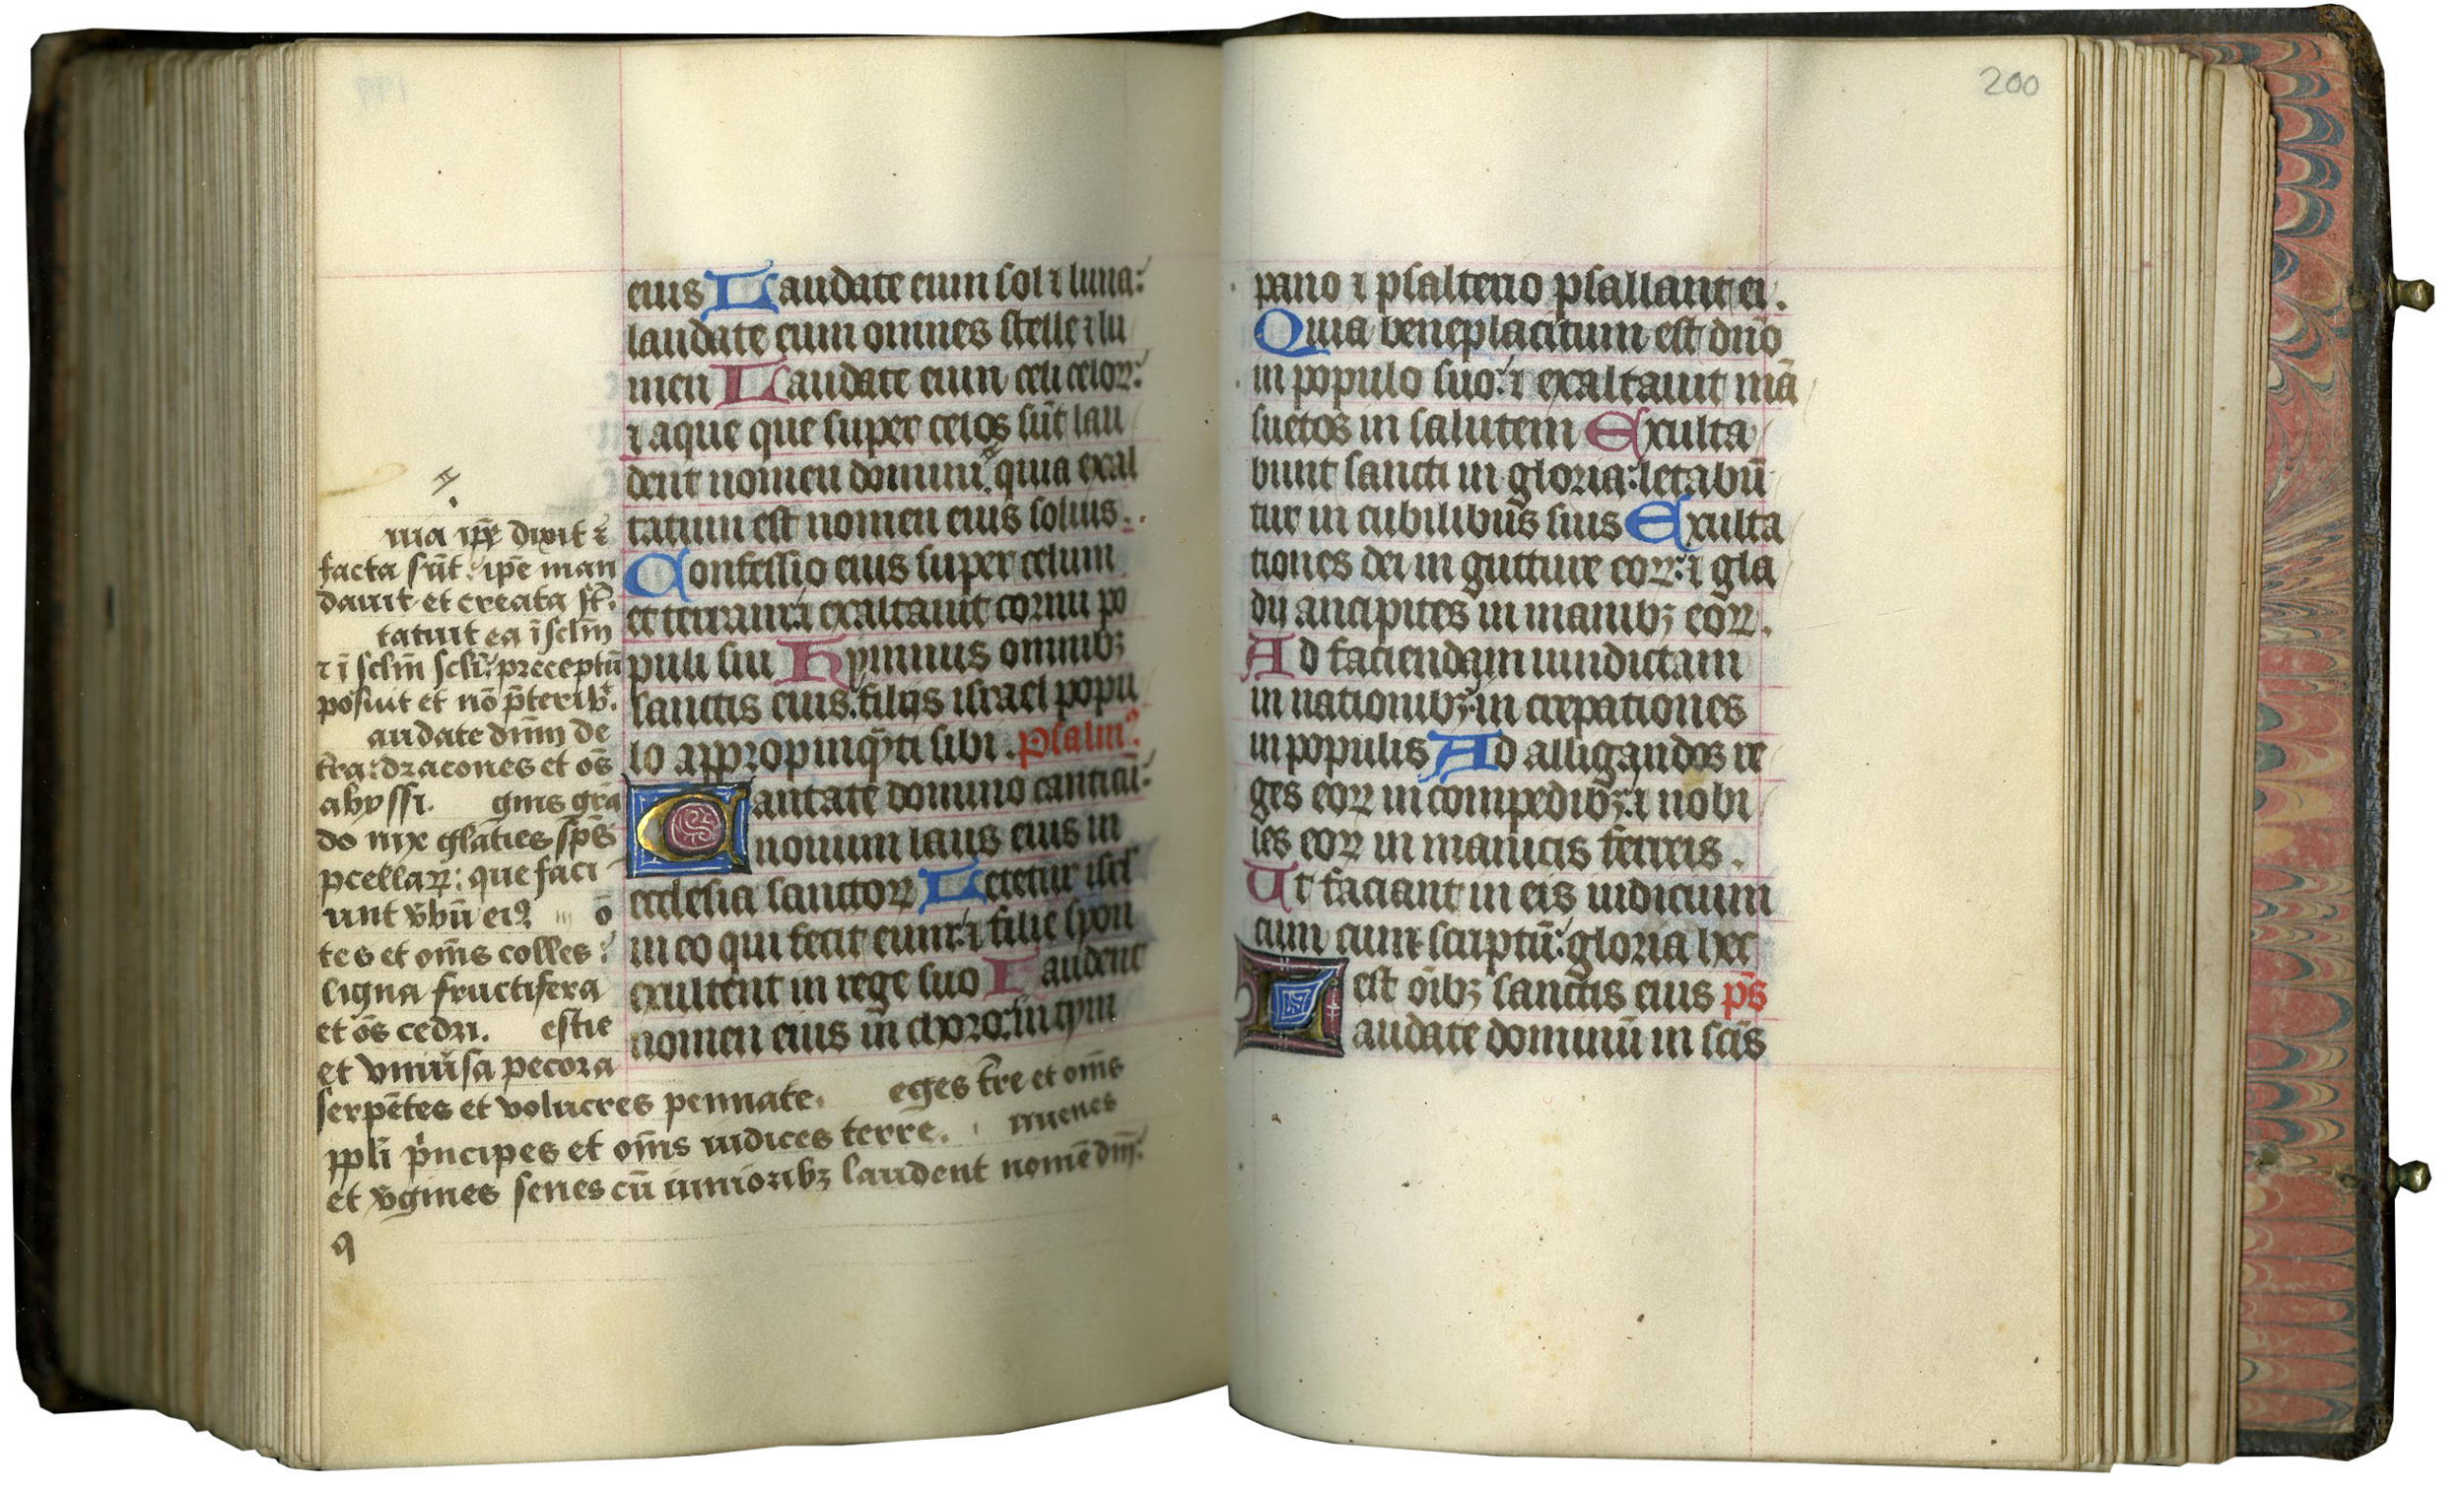 eius Laudate eum sol ⁊ luna:
laudate eum omnes stelle ⁊ lu
men Laudate eum celi celoꝝ:
⁊ aque que super celos sūt lau
dent nomen domini: quia exal
tatum est nomen eius solius.
Confessio eius super celum
et terram: ⁊ exaltauit cornu po
puli sui Hymnus omnibꝫ
sanctis eius: filijs israel popu
lo appropinq̄ti sibi. Psalmꝰ
Cantate domino canticū:
nouum laus eius in
ecclesia sanctoꝝ Letetur isrl̄
in eo qui fecit eum: ⁊ filie syon
exultent in rege suo Laudent
nomen eius in choro: in tym
uia ip̄e dixit ⁊
facta sūt: ip̄e man
dauit et creata st̄.
tatuit ea ī sclm̄
⁊ ī sclm̄ scl̄i: preceptū
posuit et nō p̄terib̄.
audate dūm de
tr̄a: dracones et oēs
abyssi. gnis grā
do nix glāties sp̄s
ꝓcellaꝝ: que faci
unt v̄bū eiꝰ ō
tes et om̄s colles:
ligna fructifera
et oēs cedri. estie
et vniūsa pecora
serpētes et volucres pennate. eges tr̄e et om̄s
ppl̄i p̄ncipes et om̄s iudices terre. iuuenes
et v̄gines senes cū iunioribꝫ laudent nomē dn̄i:
ꝯ
200
pano ⁊ psalterio psallant ei.
Quia beneplacitum est dn̄o
in populo suo: ⁊ exaltauit mā
suetos in salutem Exulta
bunt sancti in gloria: letabū
tur in cubilibus suis Exulta
tiones dei in gutture eoꝝ: ⁊ gla
dij ancipites in manibꝫ eoꝝ.
Ad faciendam uindictam
in nationibꝫ: in crepationes
in populis Ad alligandos re
ges eoꝝ in compedibꝫ: ⁊ nobi
les eoꝝ in manicis ferreis.
Ut faciant in eis iudicium
cum cum scriptū: gloria hec
est oībꝫ sanctis eius p̄s
Laudate dominū in sc̄is